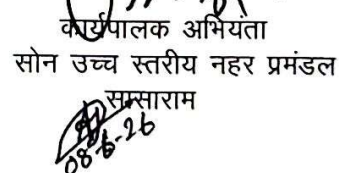 कार्यपालक अभियंता
सोन उच्च स्तरीय नहर प्रमंडल
सासाराम
08-6-26